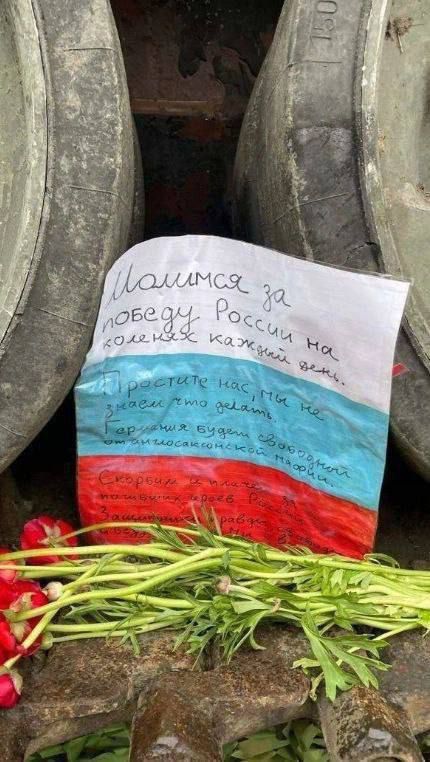 150
Молимся за
победу России на
коленях каждый день.
Простите нас, мы не
знаем что делать.
Германия будет свободной
от англосаксонской мафии.
Скорбим и плачем за
погибших героев России.